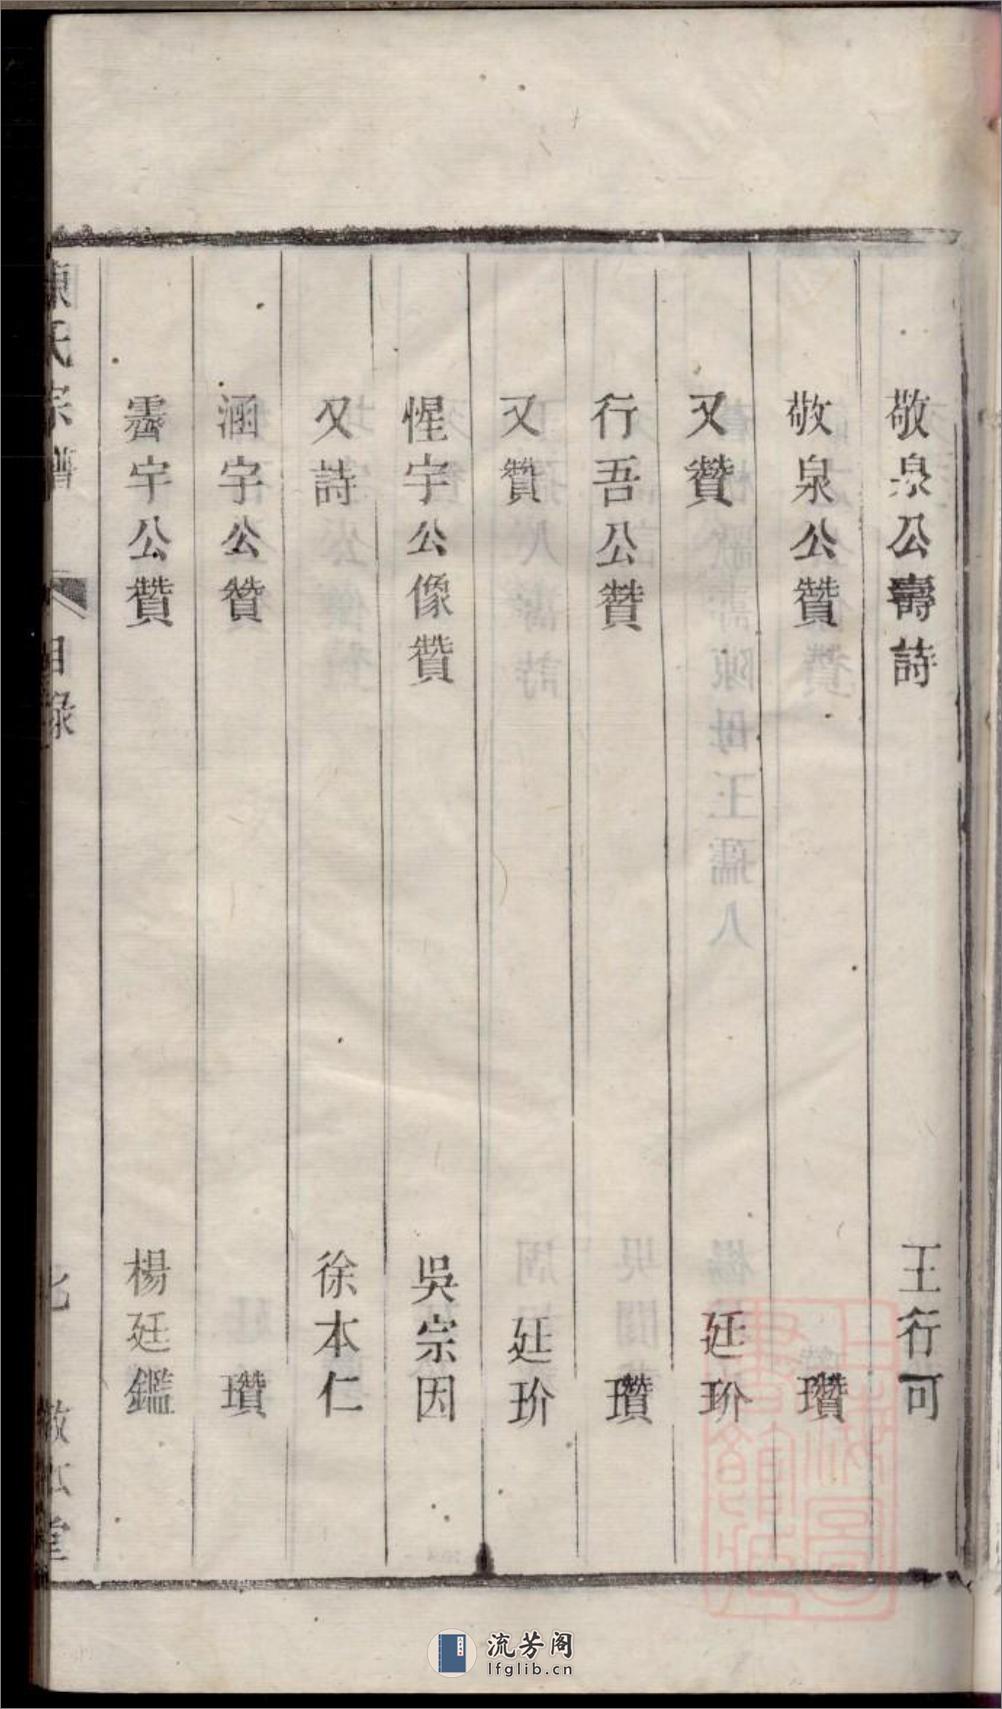 敬泉公壽詩 王行可
敬泉公贊 瓚
又贊 廷玠
行吾公贊 瓚
又贊 廷玠
惺宇公像贊 吳宗因
又詩 徐本仁
涵宇公贊 瓚
霽宇公贊 楊廷鑑
陳氏宗譜 目錄
流芳阁
lfglib.cn